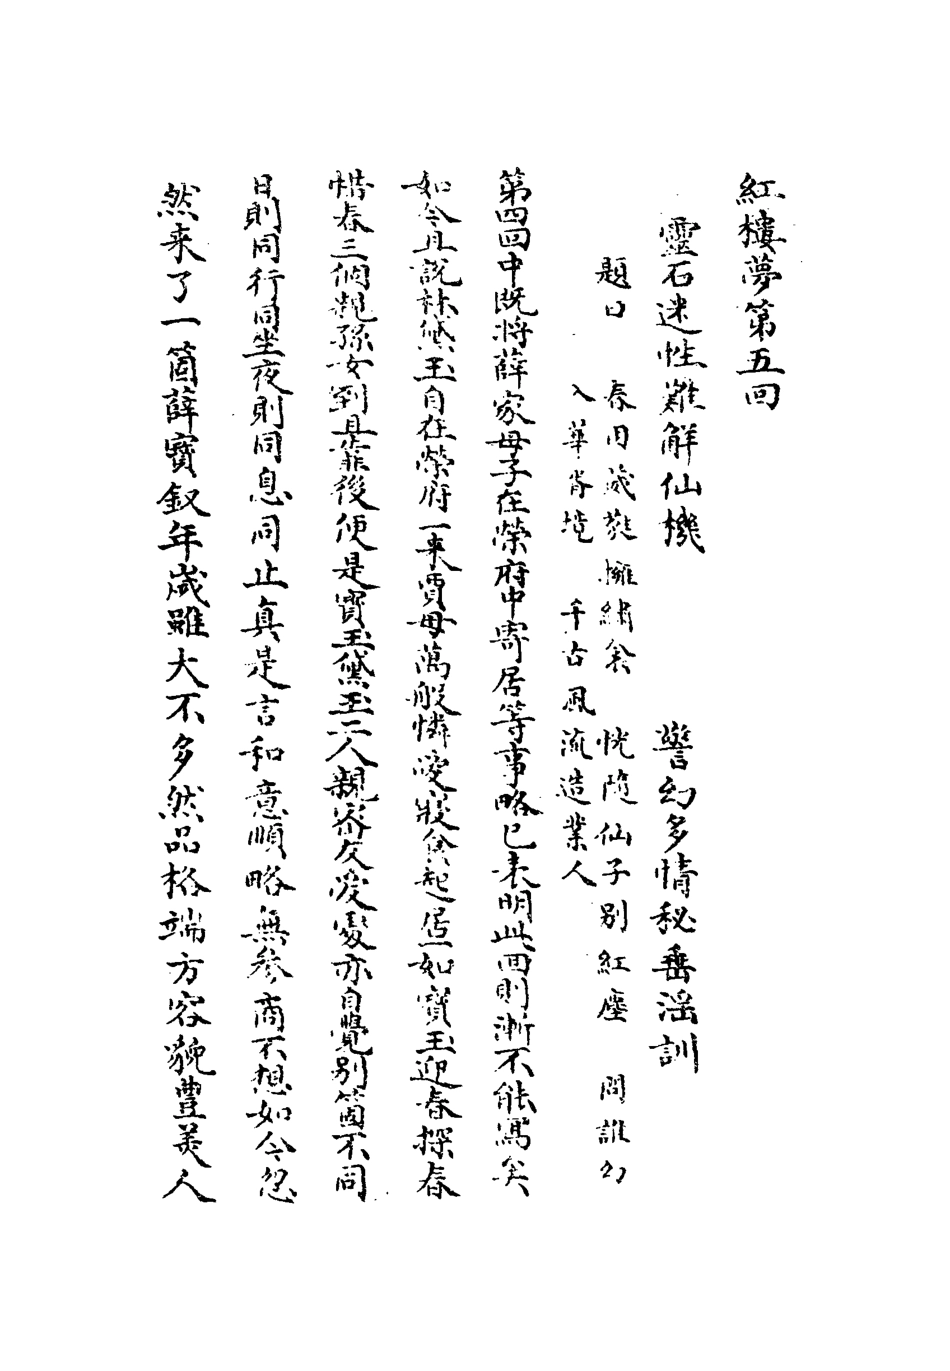 紅樓夢第五回
靈石迷性難解仙機 警幻多情秘垂淫訓
題曰 春困葳蕤擁繡衾 恍隨仙子別紅塵 問誰幻
入華胥境 千古風流造業人
第四回中既將薛家母子在榮府中寄居等事略已表明此回則漸不能寫矣
如今且說林黛玉自在榮府一来賈母萬般憐愛寢食起居一如寶玉迎春探春
惜春三個親孫女到且靠後便是寶玉黛玉二人親密友愛處亦自覺別箇不同
日則同行同坐夜則同息同止真是言和意順略無參商不想如今忽
然来了一箇薛寶釵年歲雖大不多然品格端方容貌豐美人